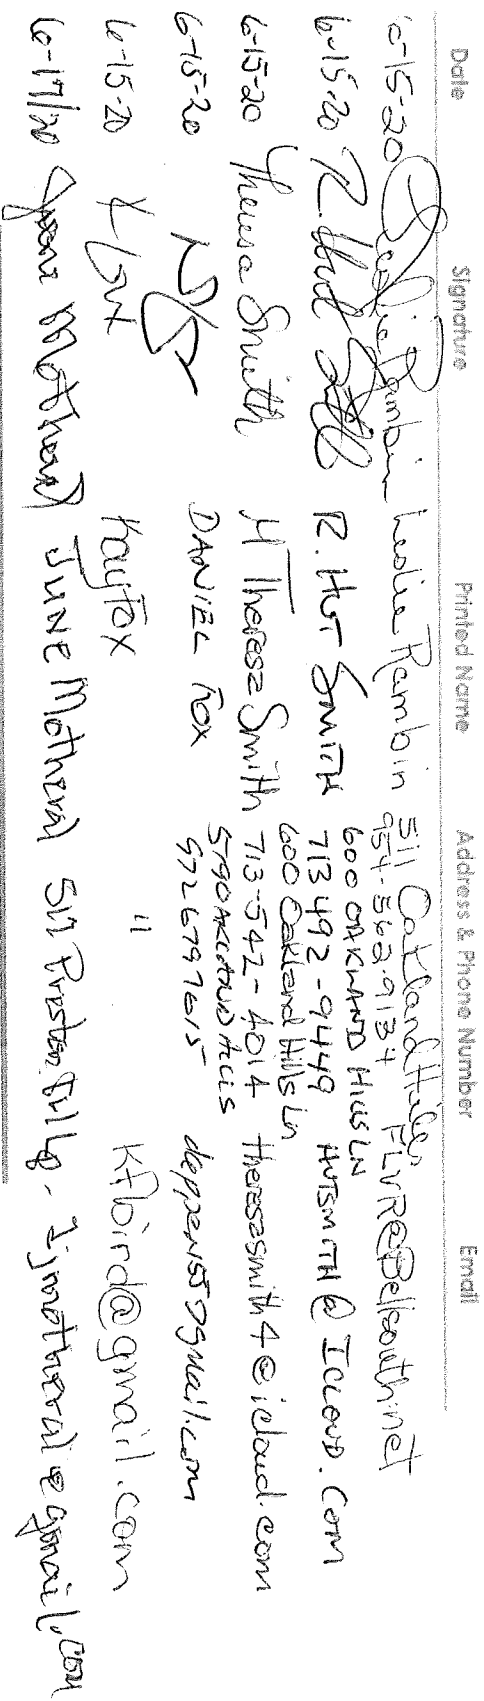 Date Signature Printed Name Address & Phone Number Email
6-15-20 Leslie Rambin Leslie Rambin 511 Oakland Hills FLVRE@Bellsouth.net
954-562-9134
6-15-20 R. Hut Smith R. HUT SMITH 600 OAKLAND HILLS LN
713 492-9449 HUTSMITH@ICLOUD.COM
6-15-20 Theresa Smith M Theresa Smith 600 Oakland Hills Ln
713-542-4014 theresasmith4@icloud.com
6-15-20 DANIEL FOX
9726797615
6-15-20 K Fox Kay Fox " Kfbird@gmail.com
6-17/20 June Motheral JUNE Motheral 511 Preston